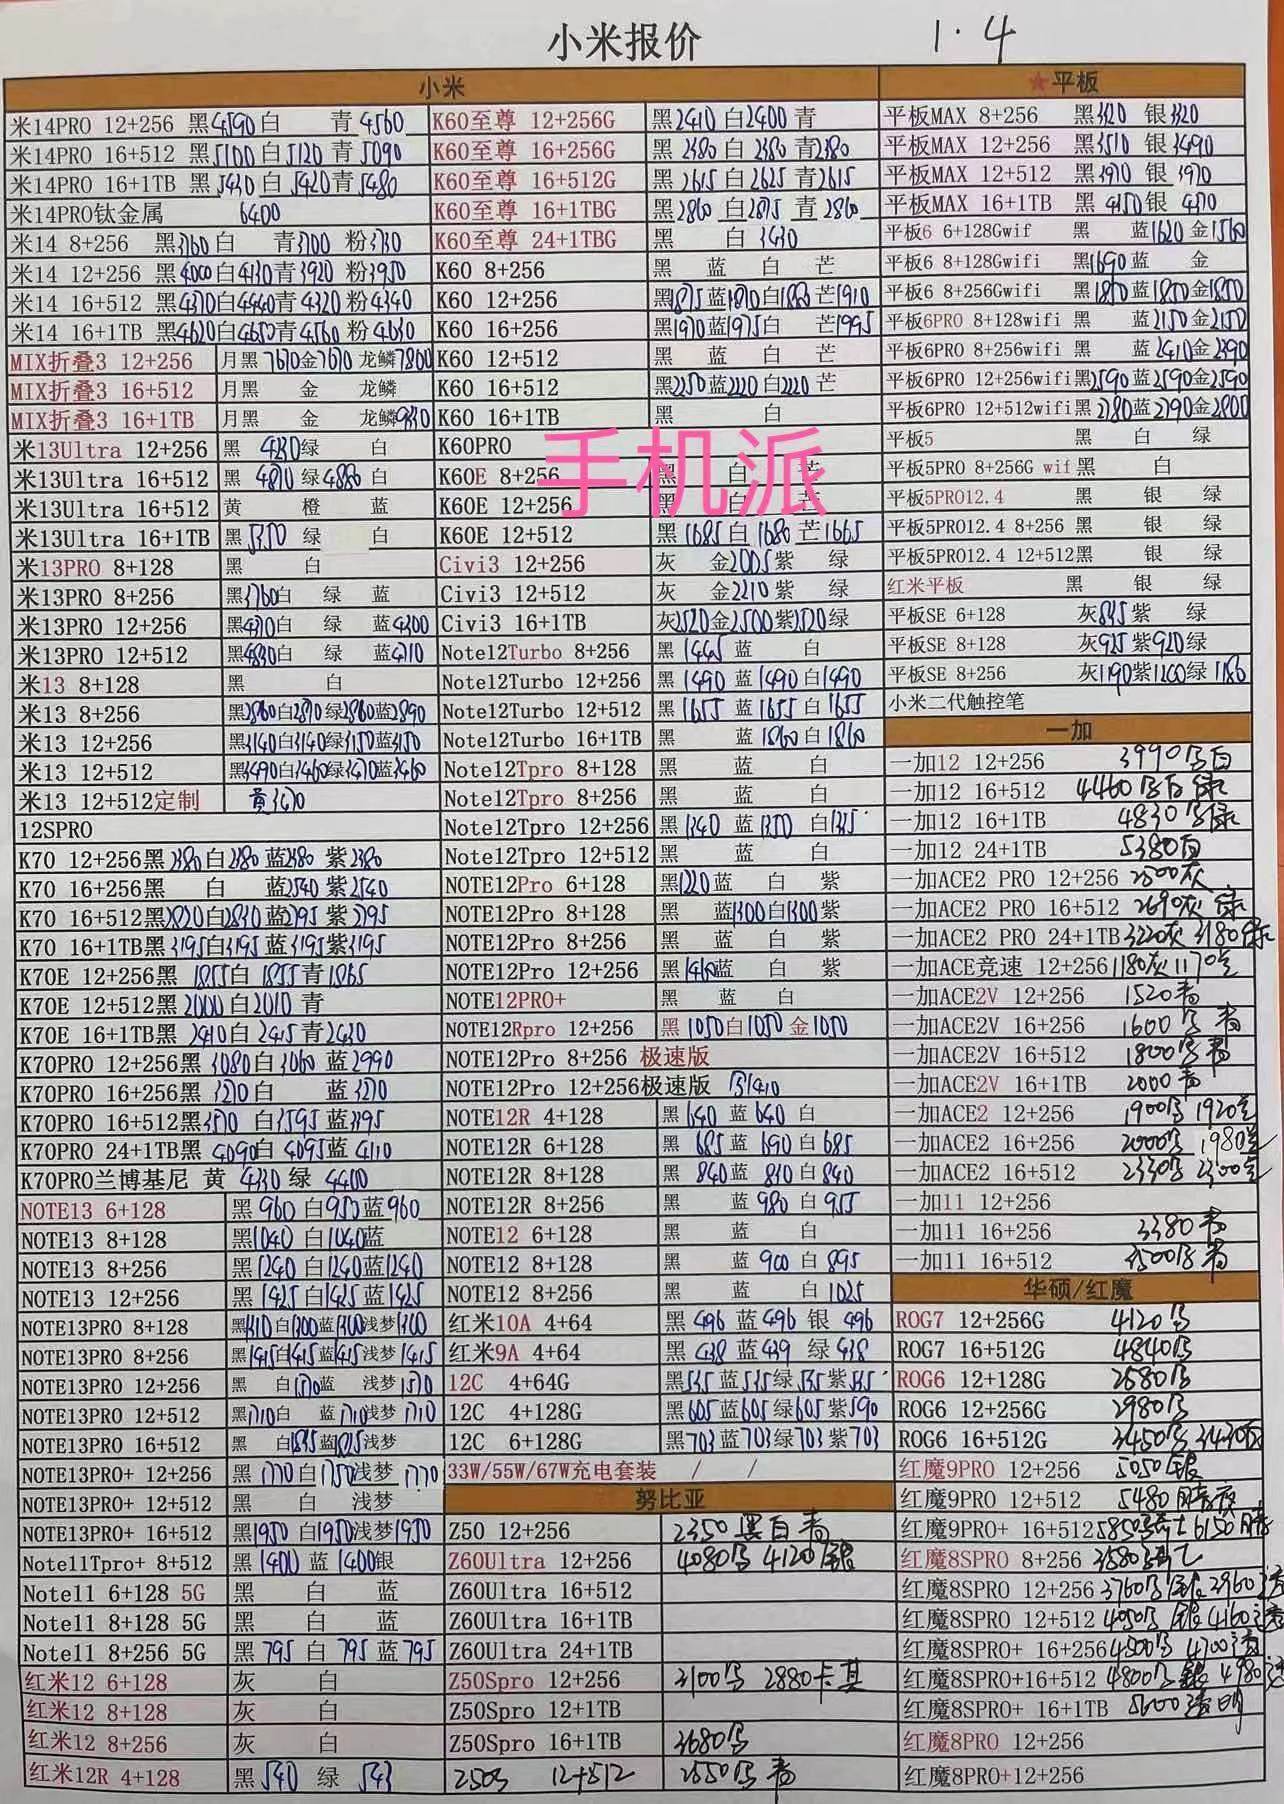 小米报价 1.4
小米
米14PRO 12+256 黑4590白 青4560
米14PRO 16+512 黑5100白5120青5090
米14PRO 16+1TB 黑5430白5420青5480
米14PRO钛金属 6400
米14 8+256 黑3760白 青3700 粉3730
米14 12+256 黑4000白4130青3920 粉3950
米14 16+512 黑4370白4440青4320粉4340
米14 16+1TB 黑4620白4650青4560粉4630
MIX折叠3 12+256 月黑7670金7670龙鳞7800
MIX折叠3 16+512 月黑 金 龙鳞
MIX折叠3 16+1TB 月黑 金 龙鳞
米13Ultra 12+256 黑 4830绿 白
米13Ultra 16+512 黑 4870绿4880白
米13Ultra 16+512 黄 橙 蓝
米13Ultra 16+1TB 黑5350 绿 白
米13PRO 8+128 黑 白
米13PRO 8+256 黑3760白 绿 蓝
米13PRO 12+256 黑4370白 绿 蓝4300
米13PRO 12+512 黑4830白 绿 蓝4710
米13 8+128 黑 白
米13 8+256 黑2860白2870绿2860蓝2890
米13 12+256 黑3140白3140绿3150蓝3150
米13 12+512 黑3490白3460绿3470蓝3460
米13 12+512定制 黄3670
12SPRO
K70 12+256黑2380白2380蓝2380紫2380
K70 16+256黑 白 蓝2540紫2540
K70 16+512黑2820白2830蓝2795紫2795
K70 16+1TB黑3195白3195蓝3195紫3195
K70E 12+256黑 1855白 1855青1865
K70E 12+512黑2000白2010青
K70E 16+1TB黑 2410白2415青2430
K70PRO 12+256黑3080白3060蓝2990
K70PRO 16+256黑3270白 蓝3270
K70PRO 16+512黑3570白3595蓝3595
K70PRO 24+1TB黑4090白4095蓝4110
K70PRO兰博基尼 黄 4330 绿 4400
NOTE13 6+128 黑960白950蓝960
NOTE13 8+128 黑1040白1040蓝
NOTE13 8+256 黑1240白1240蓝1240
NOTE13 12+256 黑1425白1425蓝1425
NOTE13PRO 8+128 黑1310白1300蓝1300浅梦1300
NOTE13PRO 8+256 黑1415白1415蓝1415浅梦1415
NOTE13PRO 12+256 黑 白1570蓝 浅梦1570
NOTE13PRO 12+512 黑1710白 蓝1710浅梦1710
NOTE13PRO 16+512 黑 白1835蓝1825浅梦
NOTE13PRO+ 12+256 黑1770白1750浅梦1770
NOTE13PRO+ 12+512 黑 白 浅梦
NOTE13PRO+ 16+512 黑1950白1950浅梦1950
Note11Tpro+ 8+512 黑1400蓝1400银
Note11 6+128 5G 黑 白 蓝
Note11 8+128 5G 黑 白 蓝
Note11 8+256 5G 黑795白795蓝795
红米12 6+128 灰 白
红米12 8+128 灰 白
红米12 8+256 灰 白
红米12R 4+128 黑540 绿 543
K60至尊 12+256G 黑2410白2400青
K60至尊 16+256G 黑2380白2380青2380
K60至尊 16+512G 黑2615白2625青2615
K60至尊 16+1TBG 黑2860白2875青2860
K60至尊 24+1TBG 黑 白3430
K60 8+256 黑 蓝 白 芒
K60 12+256 黑1875蓝1870白1880芒1910
K60 16+256 黑1970蓝1975白 芒1995
K60 12+512 黑 蓝 白 芒
K60 16+512 黑2250蓝2220白2220芒
K60 16+1TB 黑 白
K60PRO
手机派
K60E 8+256 黑 白 芒
K60E 12+256 黑 白 芒
K60E 12+512 黑1685白1680芒1665
Civi3 12+256 灰 金2005紫 绿
Civi3 12+512 灰 金2210紫 绿
Civi3 16+1TB 灰2520金2500紫2520绿
Note12Turbo 8+256 黑1445蓝 白
Note12Turbo 12+256 黑1490蓝1490白1490
Note12Turbo 12+512 黑1655蓝1655白1655
Note12Turbo 16+1TB 黑 蓝1860白1860
Note12Tpro 8+128 黑 蓝 白
Note12Tpro 8+256 黑 蓝 白
Note12Tpro 12+256 黑1340蓝1350白1345
Note12Tpro 12+512 黑 蓝 白
NOTE12Pro 6+128 黑1220蓝 白 紫
NOTE12Pro 8+128 黑 蓝1300白1300紫
NOTE12Pro 8+256 黑 蓝 白 紫
NOTE12Pro 12+256 黑1460蓝 白 紫
NOTE12PRO+ 黑 蓝 白
NOTE12Rpro 12+256 黑1050白1050金1050
NOTE12Pro 8+256 极速版
NOTE12Pro 12+256极速版 1410
NOTE12R 4+128 黑640蓝640白
NOTE12R 6+128 黑685蓝690白685
NOTE12R 8+128 黑840蓝830白840
NOTE12R 8+256 黑 蓝980白955
NOTE12 6+128 黑 蓝 白
NOTE12 8+128 黑 蓝900白895
NOTE12 8+256 黑 蓝 白1025
红米10A 4+64 黑496蓝496银496
红米9A 4+64 黑438蓝439绿438
12C 4+64G 黑535蓝535绿535紫535
12C 4+128G 黑605蓝605绿605紫590
12C 6+128G 黑703蓝703绿703紫703
33W/55W/67W充电套装 / /
努比亚
Z50 12+256 2350黑白青
Z60Ultra 12+256 4080 4120银
Z60Ultra 16+512
Z60Ultra 16+1TB
Z60Ultra 24+1TB
Z50Spro 12+256 3100 2880卡其
Z50Spro 12+1TB
Z50Spro 16+1TB 3680
12+512 2550 青
★平板
平板MAX 8+256 黑3320 银3320
平板MAX 12+256 黑3510银3490
平板MAX 12+512 黑3970银3970
平板MAX 16+1TB 黑4350银4370
平板6 6+128Gwif 黑 蓝1620金1560
平板6 8+128Gwifi 黑1690蓝 金
平板6 8+256Gwifi 黑1850蓝1850金1850
平板6PRO 8+128wifi 黑 蓝2150金2150
平板6PRO 8+256wifi 黑 蓝2410金2390
平板6PRO 12+256wifi黑2590蓝2590金2590
平板6PRO 12+512wifi黑2780蓝2790金2800
平板5 黑 白 绿
平板5PRO 8+256G wif黑 白
平板5PRO12.4 黑 银 绿
平板5PRO12.4 8+256 黑 银 绿
平板5PRO12.4 12+512黑 银 绿
红米平板 黑 银 绿
平板SE 6+128 灰835紫 绿
平板SE 8+128 灰925紫920绿
平板SE 8+256 灰1190紫1200绿1186
小米二代触控笔
一加
一加12 12+256 3990 白
一加12 16+512 4460 白绿
一加12 16+1TB 4830 绿
一加12 24+1TB 5380白
一加ACE2 PRO 12+256 2500灰
一加ACE2 PRO 16+512 2690灰 绿
一加ACE2 PRO 24+1TB3220灰 3180绿
一加ACE竞速 12+256 1180灰1170
一加ACE2V 12+256 1520青
一加ACE2V 16+256 1600 青
一加ACE2V 16+512 1800 青
一加ACE2V 16+1TB 2000青
一加ACE2 12+256 1900 1920
一加ACE2 16+256 2000 1980
一加ACE2 16+512 2330 2300
一加11 12+256
一加11 16+256 3380青
一加11 16+512 3500 青
华硕/红魔
ROG7 12+256G 4120
ROG7 16+512G 4840
ROG6 12+128G 2580
ROG6 12+256G 2980
ROG6 16+512G 3450 3430白
红魔9PRO 12+256 5050银
红魔9PRO 12+512 5480暗夜
红魔9PRO+ 16+512 5850 6150
红魔8SPRO 8+256 3580
红魔8SPRO 12+256 3760 银
红魔8SPRO 12+512 4050 银4160
红魔8SPRO+ 16+256 4500 4700
红魔8SPRO+16+512 4800 银 4980
红魔8SPRO+ 16+1TB 5600透明
红魔8PRO 12+256
红魔8PRO+12+256